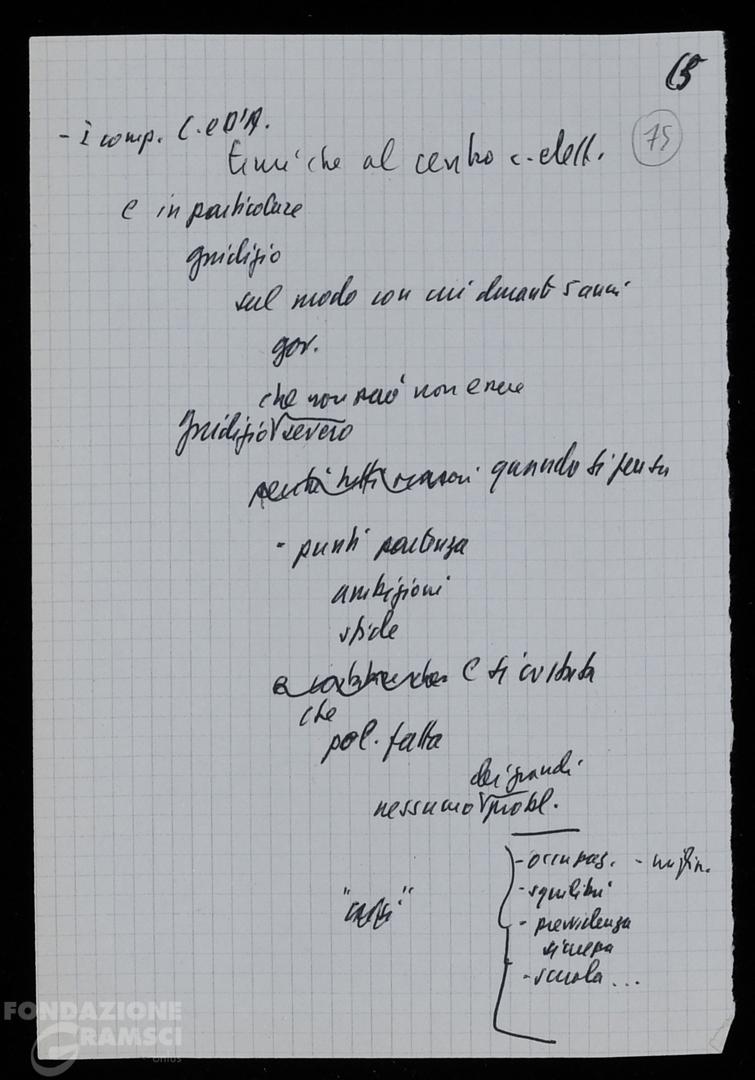 15
75
- I comp. C. e D'A.
temi che al centro c. elett.
e in particolare
giudizio
sul modo con cui durante 5 anni
gov.
che non può non essere
giudizio severo
quando si pensa
- punti partenza
ambizioni
sfide
e si constata
che
pol. fatta
dei grandi
nessuno probl.
- occupaz.
- squilibri
- previdenza
sicurezza
- scuola ...
FONDAZIONE
GRAMSCI
onlus